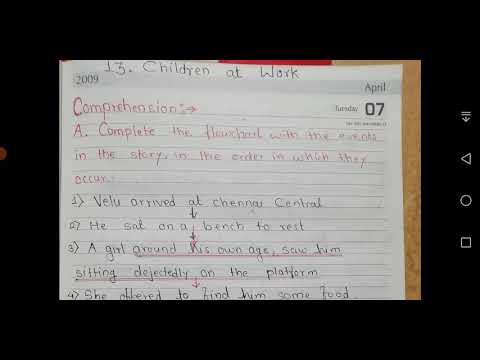 13. Children at Work
2009
April
Tuesday 07
Comprehension:→
A. Complete the flowchart with the events
in the story, in the order in which they
occur.
1) Velu arrived at chennai Central
2) He sat on a bench to rest
3) A girl around his own age, saw him
sitting dejectedly on the platform
4) She offered to find him some food.